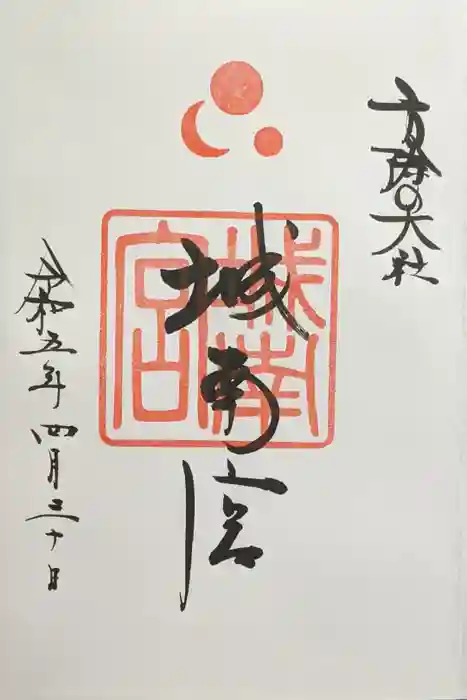 方除の大社
城南宮
城南宮
令和五年四月三十日